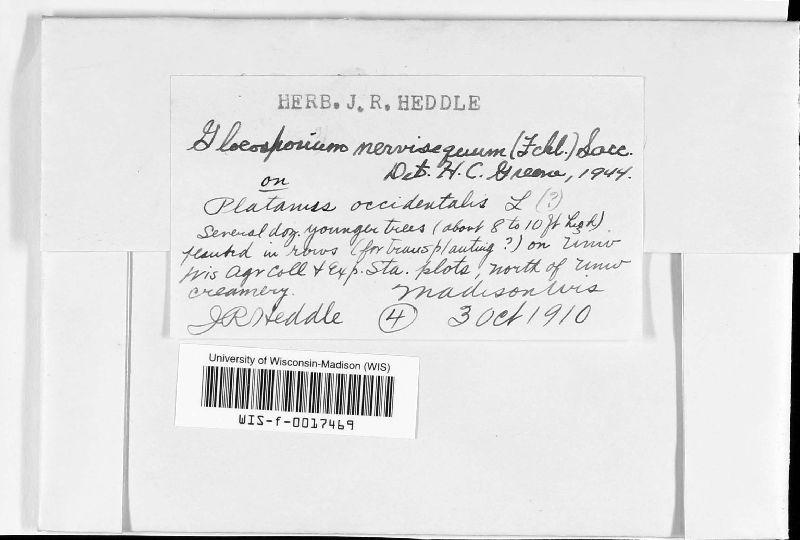 HERB. J. R. HEDDLE
Gloeosporium nervisequum (Fckl.) Sacc.
Det. H. C. Greene, 1944.
on
Platanus occidentalis L (?)
Several doz. younger trees (about 8 to 10 ft high)
planted in rows (for transplanting ?) on Univ
Wis Agr Coll & Exp. Sta. plots, north of Univ
creamery. Madison Wis
J R Heddle (4) 3 Oct 1910
University of Wisconsin-Madison (WIS)
WIS-f-0017469